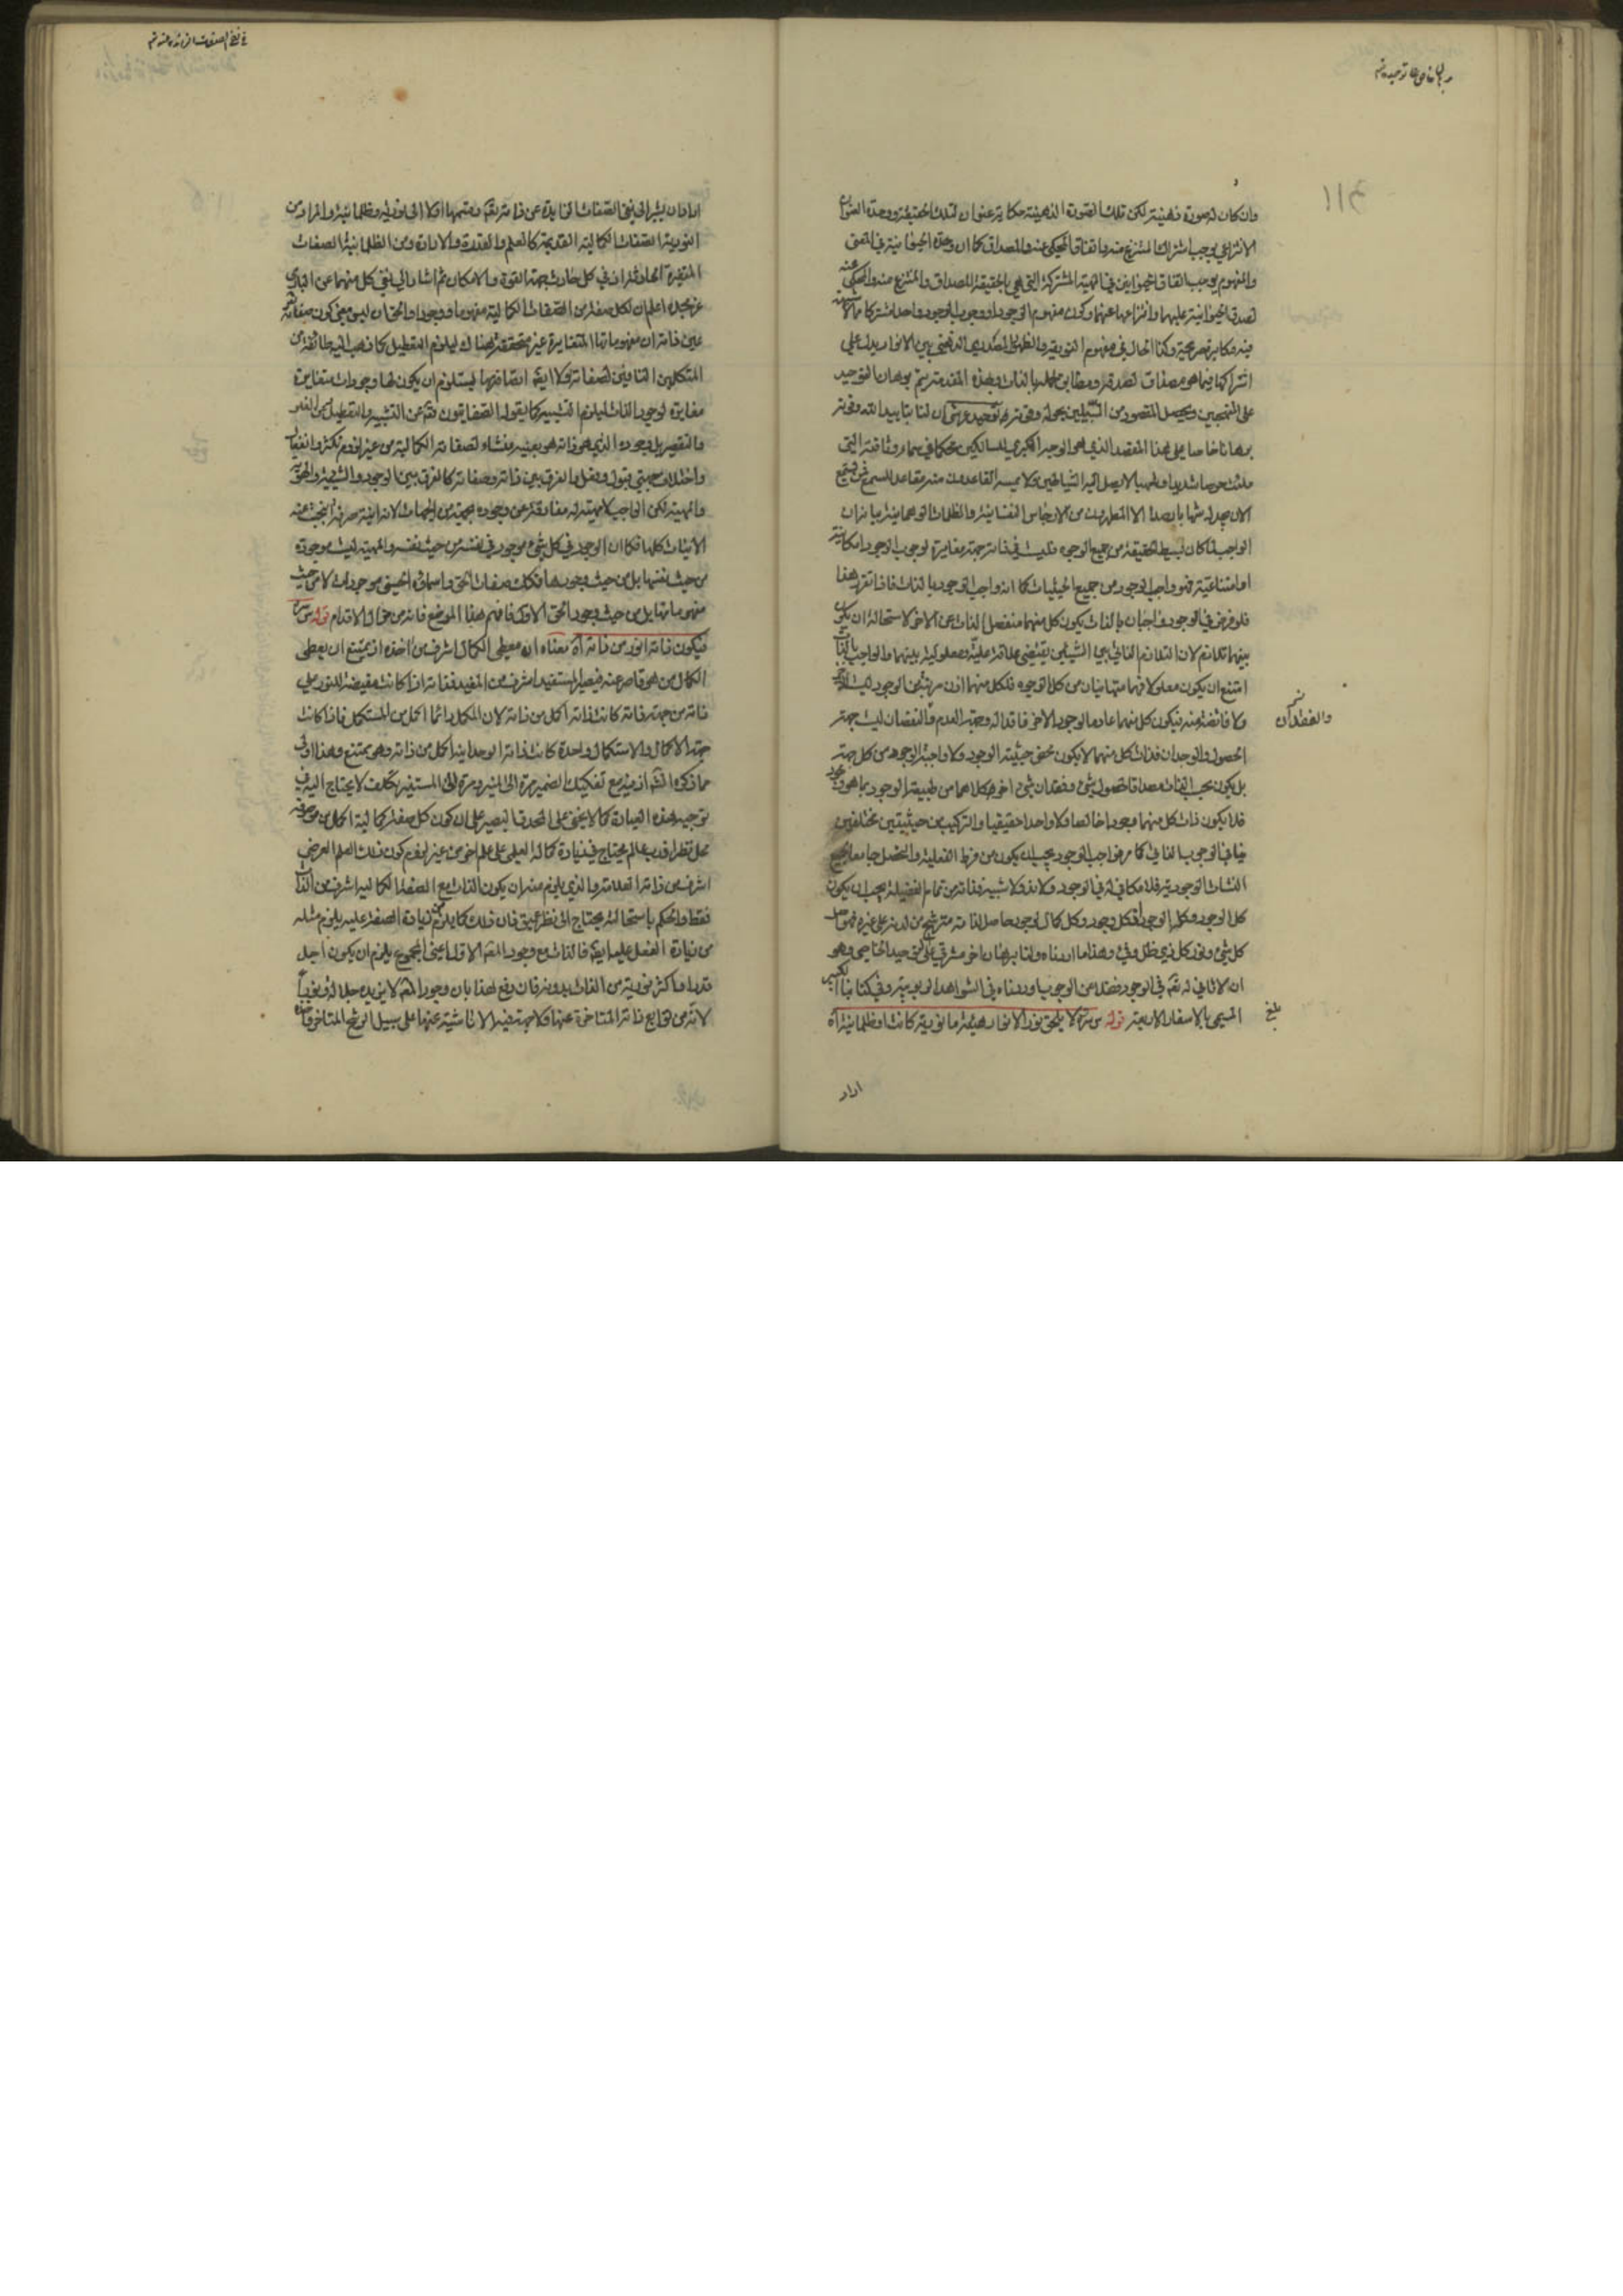 وان كان له صورة ذهنية لكن تلك الصورة الذهنية حكاية عنوان لتلك الحقيقة ووحدة العنوان
الانتزاعي يوجب اشتراك المنتزع منه واتفاق المحكي عنه والمصداق كما ان وحدة الحيوانية في المعنى
والمفهوم يوجب اتفاق الحيوانين في المهية المشتركة التي هي بالحقيقة المصداق والمنتزع منه والمحكي عنه
لصدق الحيوانية عليهما وانتزاعها عنهما وكون مفهوم الوجود او وجوب الوجود واحدا مشتركا مما لا شبهة
فيه وكذا الحال في مفهوم النورية والظهور المصدري الذهني بين الانوار يدل على
اشتراكها فيما هو مصداق لصدقه ومطابق لحمله بالذات وبهذه المقدمة يتم برهان التوحيد
على المنهجين ويحصل المقصود من السبيلين بحوله وقوته توحيد عرشي ان لنا بتاييد الله وقوته
برهانا خاصا على هذا المقصد الذي هو الوجهة الكبرى للسالكين محكما في سماء وثاقته التي
ملئت حرسا شديدا وشهبا لا يصل اليه الشياطين ولا يمسه القاعدون منه مقاعد للسمع فمن يستمع
الان يجد له شهابا رصدا الا المتطهرون من الارجاس النفسانية والظلمات الوهمانية بيانه ان
الواجب لما كان بسيط الحقيقة من جميع الوجوه فليست في ذاته جهة مغايرة لوجوب الوجود امكانية
او امتناعية فهو واجب الوجود من جميع الحيثيات كما انه واجب الوجود بالذات فاذا تقرر هذا
فلو فرض في الوجود واجبان بالذات يكون كل منهما منفصل الذات عن الاخر لاستحالة ان يكون
بينهما تلازم لان التلازم الذاتي بين الشيئين يقتضي علاقة علية ومعلولية بينهما والواجب بالذات
امتنع ان يكون معلولا فهما متباينان من كل الوجوه فلكل منهما اذن مرتبة من الوجود ليست للاخر
ولا فائضة منه فيكون كل منهما عادما لوجود الاخر فاقدا له وجهة العدم والنقصان ليست جهة
والفقدان
الحصول والوجدان فذات كل منهما لا يكون محض حيثية الوجود ولا واجبة الوجود من كل جهة
بل يكون بحسب الذات مصداقا لحصول شيء وفقدان شيء اخر كلاهما من طبيعة الوجود بما هو وجود
فلا يكون ذات كل منهما وجودا خالصا ولا واحدا حقيقيا والتركيب من حيثيتين مختلفتين
ينافي الوجوب الذاتي كما مر فواجب الوجود يجب ان يكون من فرط الفعلية والتحصل جامعا لجميع
النشات الوجودية فلا مكافئ له في الوجود ولا ند ولا شبيه فذاته من تمام الفضيلة يجب ان يكون
كل الوجود وكله الوجود فكل وجود وكل كمال لوجود حاصل لذاته مترشح من لدنه على غيره فهو اصل
كل شيء ونور كل ذي ظل وفيء وهذا ما اردناه ولنا برهان اخر مشرقي على توحيد الخاصي وهو
ان لا ثاني له تعالى في الوجود فضلا عن الوجوب اوردناه في الشواهد الربوبية وفي كتابنا الكبير
المسمى بالاسفار الاربعة قوله س سره لا يلحق نور الانوار هيئة ما نورية كانت او ظلمانية اه
بلغ
اراد
اراد ان يشير الى نفي الصفات الزايدة عن ذاته تعالى وقسمها اولا الى نورانية وظلمانية واراد من
النورية الصفات الكمالية القديمة كالعلم والقدرة والارادة ومن الظلمانية الصفات
المتغيرة الحادثة اذ في كل حادث جهة القوة والامكان ثم اشار الى نفي كل منهما عن الباري
عز مجده اعلم ان لكل صفة من الصفات الكمالية مفهوما ووجودا والحق ان ليس معنى كون صفاته تعالى
عين ذاته ان مفهوماتها المتغايرة غير متحققة هناك ليلزم التعطيل كما ذهب اليه طائفة من
المتكلمين النافين لصفاته ولا ايضا اتصافه بها يستلزم ان يكون لها وجودات متغايرة
مغايرة لوجود الذات ليلزم التشبيه كما يقوله الصفاتيون تعالى عن التشبيه والتعطيل وعن الغلو
والتقصير بل وجوده الذي هو ذاته هو بعينه منشاء لصفاته الكمالية من غير لزوم تكثر وانفعال
واختلاف حيثيتي قبول وفعل والفرق بين ذاته وصفاته كالفرق بين الوجود والشيئية والهوية
والمهية لكن الواجب لا مهية له مفارقة عن وجوده بجهة من الجهات لانه انية صرفة ينبجس عنه
الانيات كلها فكما ان الوجود في كل شيء موجود في نفسه من حيث نفسه والمهية ليست موجودة
من حيث نفسها بل من حيث وجودها فكذلك صفات الحق واسماؤه الحسنى موجودات لا من حيث
مفهوماتها بل من حيث وجود الحق الاول فافهم هذا الموضع فانه من مزال الاقدام قوله س سره
فيكون ذاته انور من ذاته اه معناه ان معطي الكمال اشرف من اخذه اذ يمتنع ان يعطي
الكمال من هو قاصر عنه فيصير المستفيد اشرف من المفيد فذاته اذا كانت مفيضة للنور على
ذاته من جهة ذاته كانت ذاته اكمل من ذاته لان المكمل دائما اكمل من المستكمل فاذا كانت
جهة الاكمال والاستكمال واحدة كانت ذاته الوحدانية اكمل من ذاته وهو ممتنع وهذا اولى
مما ذكره الشارح اذ فيه مع تفكيك الضمير مرة الى المنير ومرة الى المستنير تكلف لا يحتاج اليه في
توجيه هذه العبارة كما لا يخفى على الحدقاء البصير على ان كون كل صفة كمالية اكمل من موصوفه
محل نظر اذ رب عالم يحتاج في زيادة كماله العلمي على علم اخر من غير لزوم كون ذلك العلم العرضي
اشرف من ذاته العلامة والذي يلزم منه ان يكون الذات مع الصفة الكمالية اشرف من الذات
فقط والحكم باستحالته يحتاج الى نظر عميق فان ذلك كما يلزم من زيادة الصفة عليه يلزم مثله
من زيادة الفعل عليه ايضا فالذات مع وجود العقل الاول اعني المجموع يلزم ان يكون اجل
قدرا واكثر نورية من الذات بدونه فان دفع هذا بان وجود العقل لا يزيده جلالة ونورا
لانه من توابع ذاته المتاخرة عنها فلا جهة فيه الا ناشية عنها على سبيل الرشح المتاخر